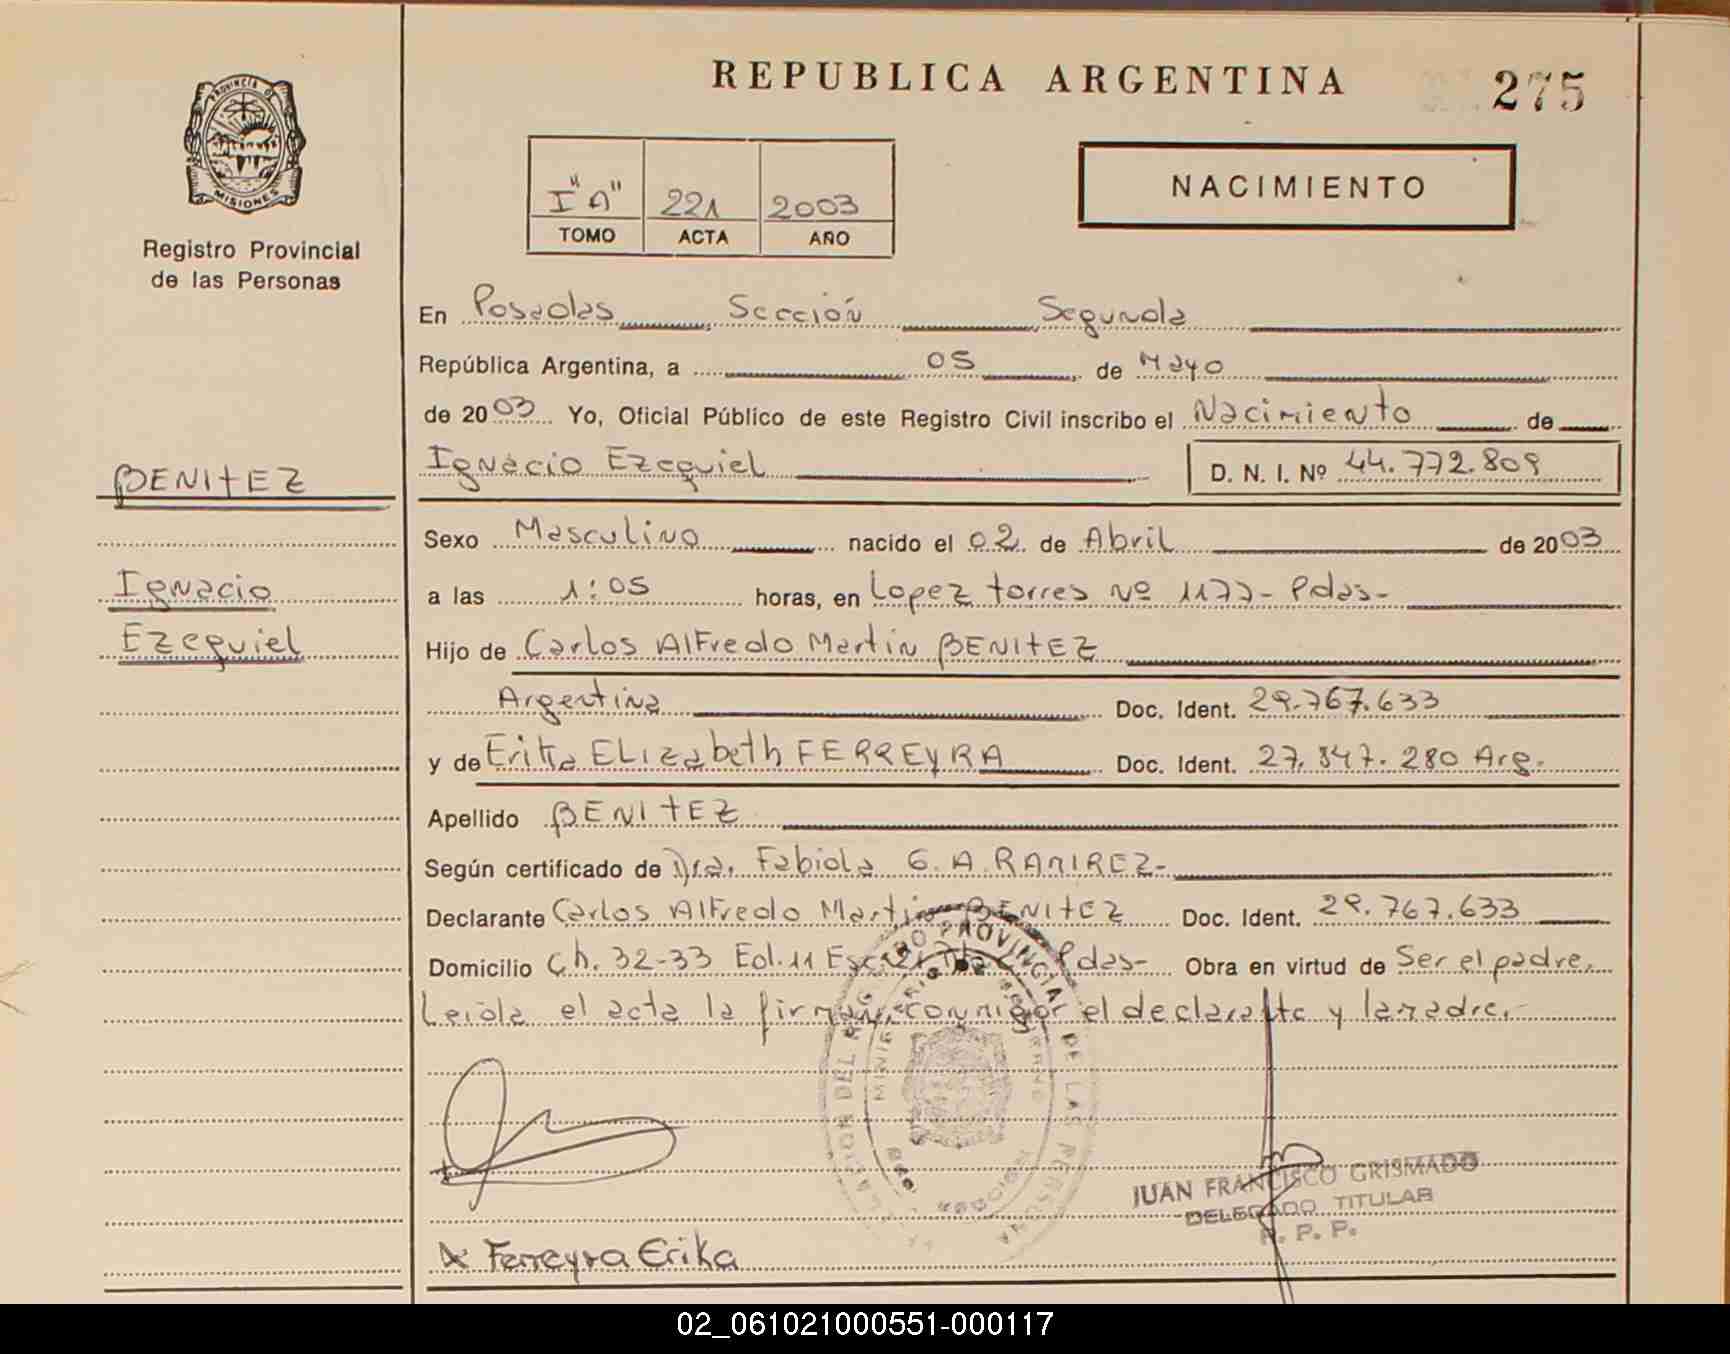 REPUBLICA ARGENTINA
275
PROVINCIA DE
MISIONES
Registro Provincial
de las Personas
I "A" 221 2003
TOMO ACTA AÑO
NACIMIENTO
En Posadas Sección Segunda
República Argentina, a 05 de Mayo
de 2003 Yo, Oficial Público de este Registro Civil inscribo el Nacimiento de
Ignacio Ezequiel D. N. I. Nº 44.772.809
BENITEZ
Ignacio
Ezequiel
Sexo Masculino nacido el 02 de Abril de 2003
a las 1:05 horas, en Lopez torres Nº 1177- Pdas-
Hijo de Carlos Alfredo Martin BENITEZ
Argentina Doc. Ident. 29.767.633
y de Erika ELizabeth FERREYRA Doc. Ident. 27.847.280 Arg.
Apellido BENITEZ
Según certificado de Dra. Fabiola G. A. RAMIREZ-
Declarante Carlos Alfredo Martin BENITEZ Doc. Ident. 29.767.633
Domicilio Ch. 32-33 Ed. 11 Esc. Pdas- Obra en virtud de Ser el padre,
Leida el acta la firman conmigo el declarante y la madre.-
REGISTRO PROVINCIAL DE LAS PERSONAS
JUAN FRANCISCO GRISMADO
DELEGADO TITULAR
R. P. P.
Ferreyra Erika
02_061021000551-000117